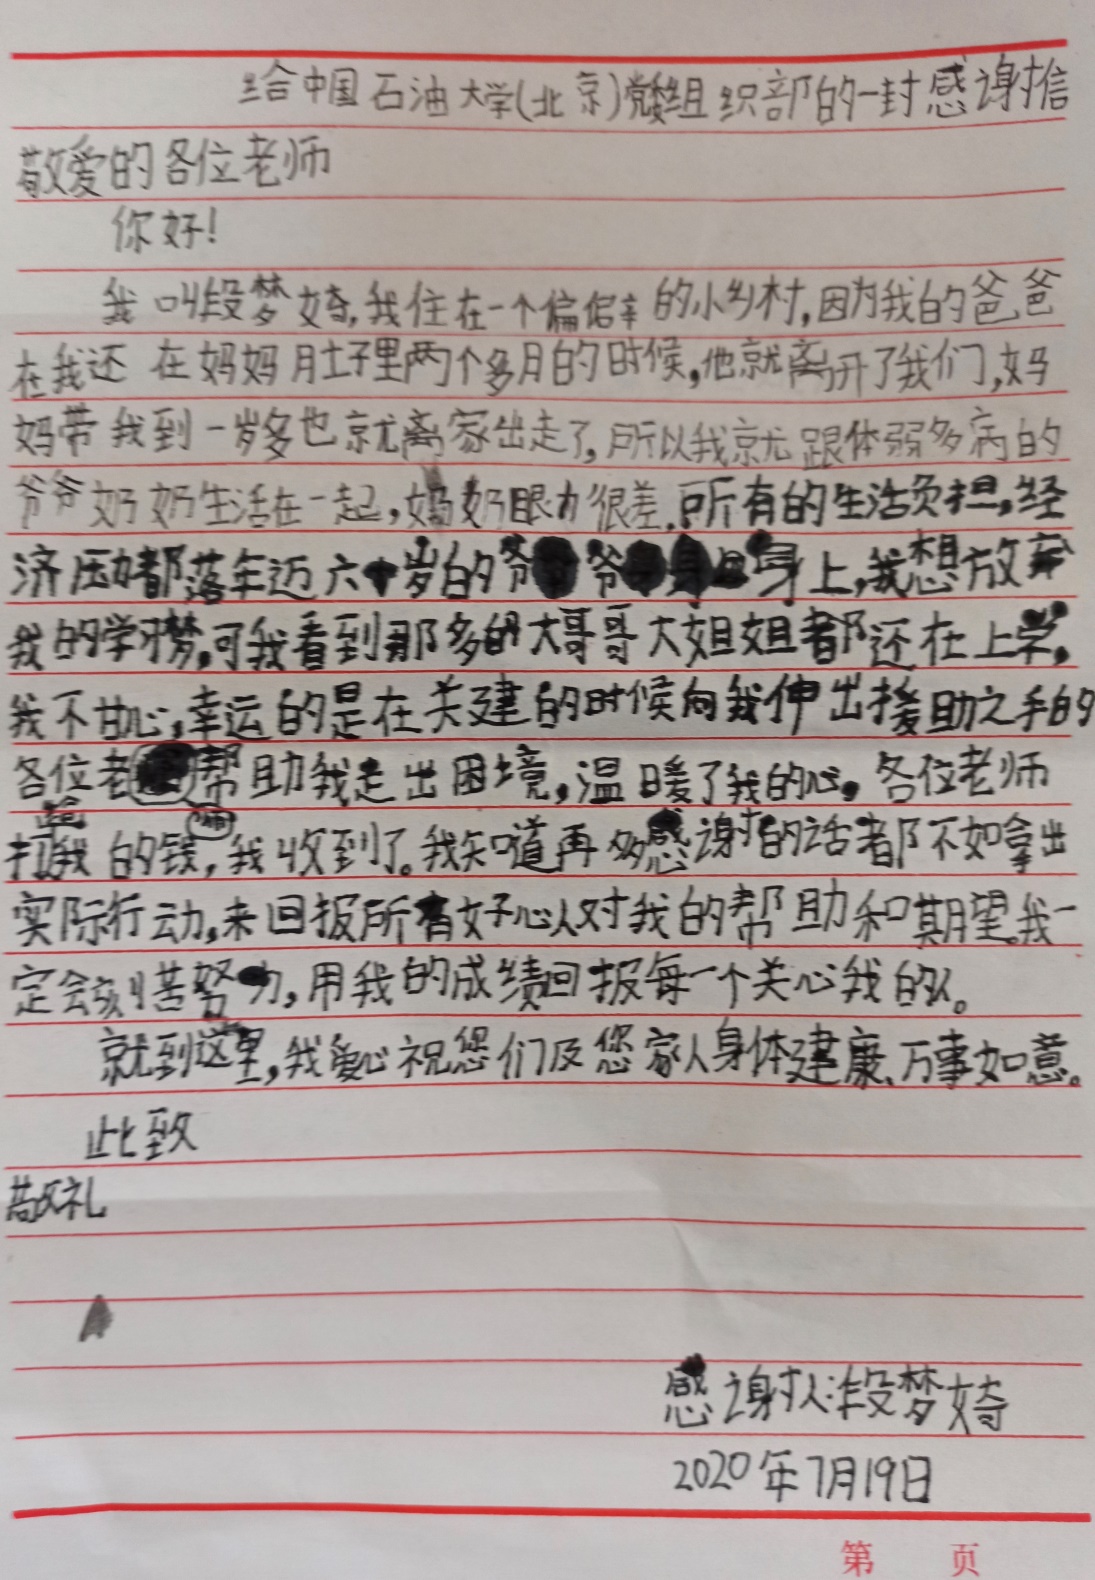 给中国石油大学(北京)党委组织部的一封感谢信
敬爱的各位老师
你好!
我叫段梦婍,我住在一个偏僻的小乡村,因为我的爸爸
在我还在妈妈肚子里两个多月的时候,他就离开了我们,妈
妈带我到一岁多也就离家出走了,所以我就跟体弱多病的
爷爷奶奶生活在一起,奶奶眼力很差,所有的生活负担,经
济压力都落年迈六十岁的爷爷身上,我想放弃
我的学梦,可我看到那多的大哥哥大姐姐都还在上学,
我不甘心,幸运的是在关建的时候向我伸出援助之手的
各位老帮助我走出困境,温暖了我的心。各位老师
打给我的钱,我收到了。我知道再多感谢的话都不如拿出
实际行动,来回报所有好心人对我的帮助和期望。我一
定会刻苦努力,用我的成绩回报每一个关心我的人。
就到这里,我衷心祝您们及您家人身体建康、万事如意。
此致
敬礼
感谢人:段梦婍
2020年7月19日
第 页